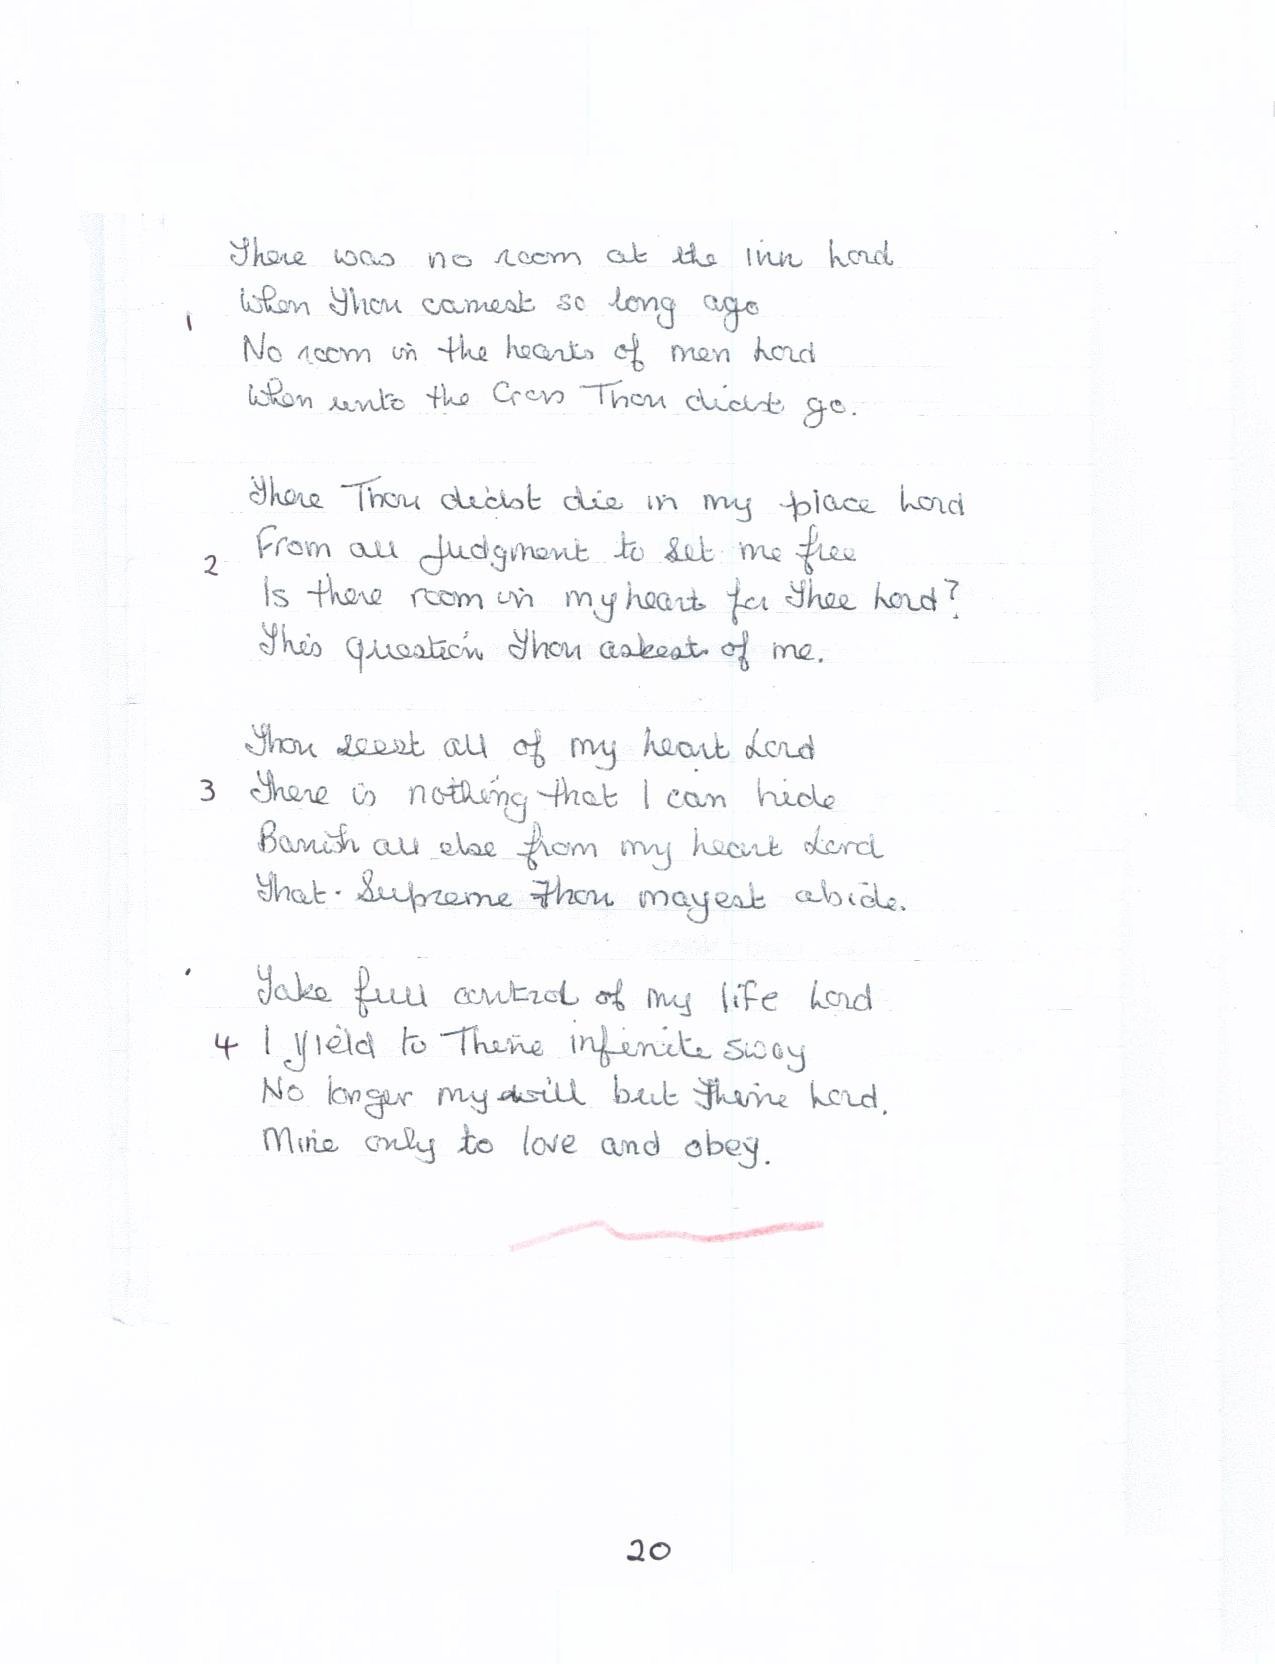 There was no room at the inn Lord
When Thou camest so long ago
1
No room in the hearts of men Lord
When unto the Cross Thou didst go.
There Thou didst die in my place Lord
From all Judgment to set me free
2
Is there room in my heart for Thee Lord?
This question Thou askest of me.
Thou seest all of my heart Lord
3 There is nothing that I can hide
Banish all else from my heart Lord
That Supreme Thou mayest abide.
Take full control of my life Lord
4 I yield to Thine infinite sway
No longer my will but Thine Lord.
Mine only to love and obey.
20